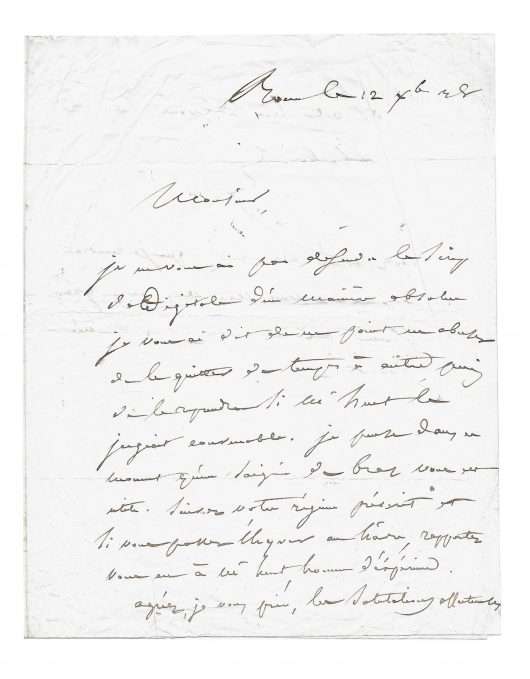 le 12 xb 38
Monsieur
je ne vous ai pas défendu le Sirop
de Digitale d'une manière absolue
je vous ai dit de ne point en abuser
de le quitter de temps à autre puis
de le reprendre si Mr huet le
jugeait convenable. je pense dans ce
moment qu'une Saignée de bras vous est
utile. Suivez votre régime présent et
Si vous passez l'hyver au hâvre, rapportez
vous en à Mr huet homme d'expérience.
agréez, je vous prie, les Salutations affectueuses